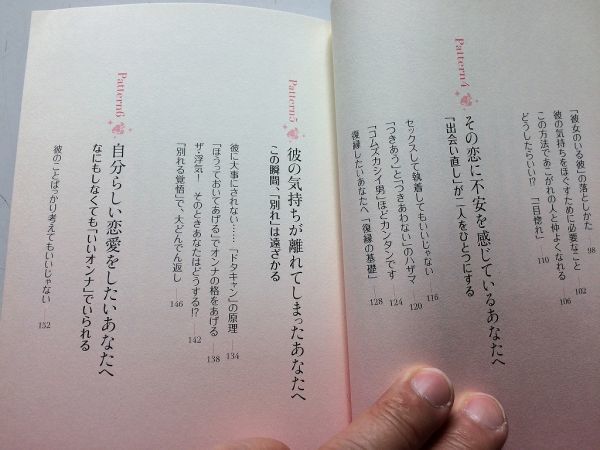 「彼女のいる彼」の落としかた 98
彼の気持ちをほぐすために必要なこと 102
この方法であこがれの人と仲よくなれる 106
どうしたらいい!? 「一目惚れ」 110
Pattern4
その恋に不安を感じているあなたへ
「出会い直し」が二人をひとつにする
セックスして執着してもいいじゃない 116
「つきあう」と「つきあわない」のハザマ 120
「コムズカシイ男」ほどカンタンです 124
復縁したいあなたへ「復縁の基礎」 128
Pattern5
彼の気持ちが離れてしまったあなたへ
この瞬間、「別れ」は遠ざかる
彼に大事にされない……「ドタキャン」の原理 134
「ほうっておいてあげる」でオンナの格をあげる 138
ザ・浮気! そのときあなたはどうする!? 142
「別れる覚悟」で、大どんでん返し 146
Pattern6
自分らしい恋愛をしたいあなたへ
なにもしなくても「いいオンナ」でいられる
彼のことばっかり考えてもいいじゃない 152